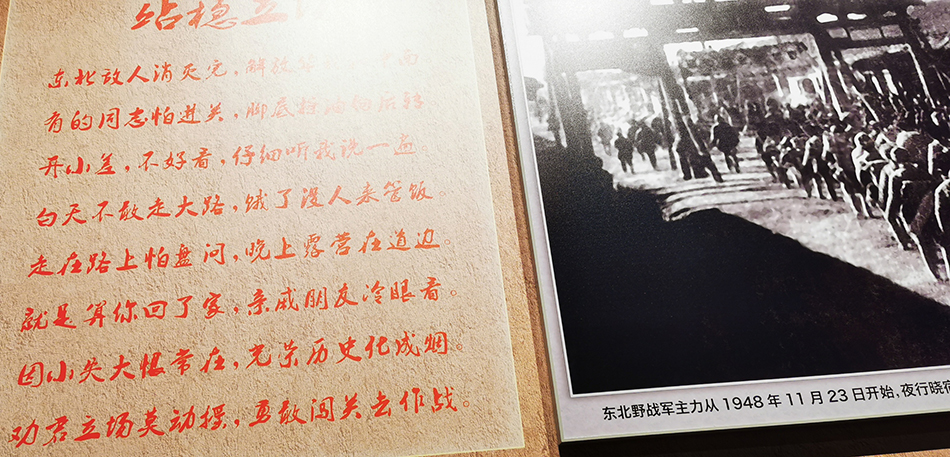 站稳立
东北敌人消灭完,解放 南
有的同志怕进关,脚底 油 后转
开小差,不好看,仔细听我说一遍。
白天不敢走大路,饿了没人来管饭。
走在路上怕盘问,晚上露营在道边。
就是算你回了家,亲戚朋友冷眼看。
因小失大恨常在,光荣历史化成烟。
劝君立场莫动摇,勇敢闯关去作战。
东北野战军主力从 1948 年 11 月 23 日开始,夜行晓宿